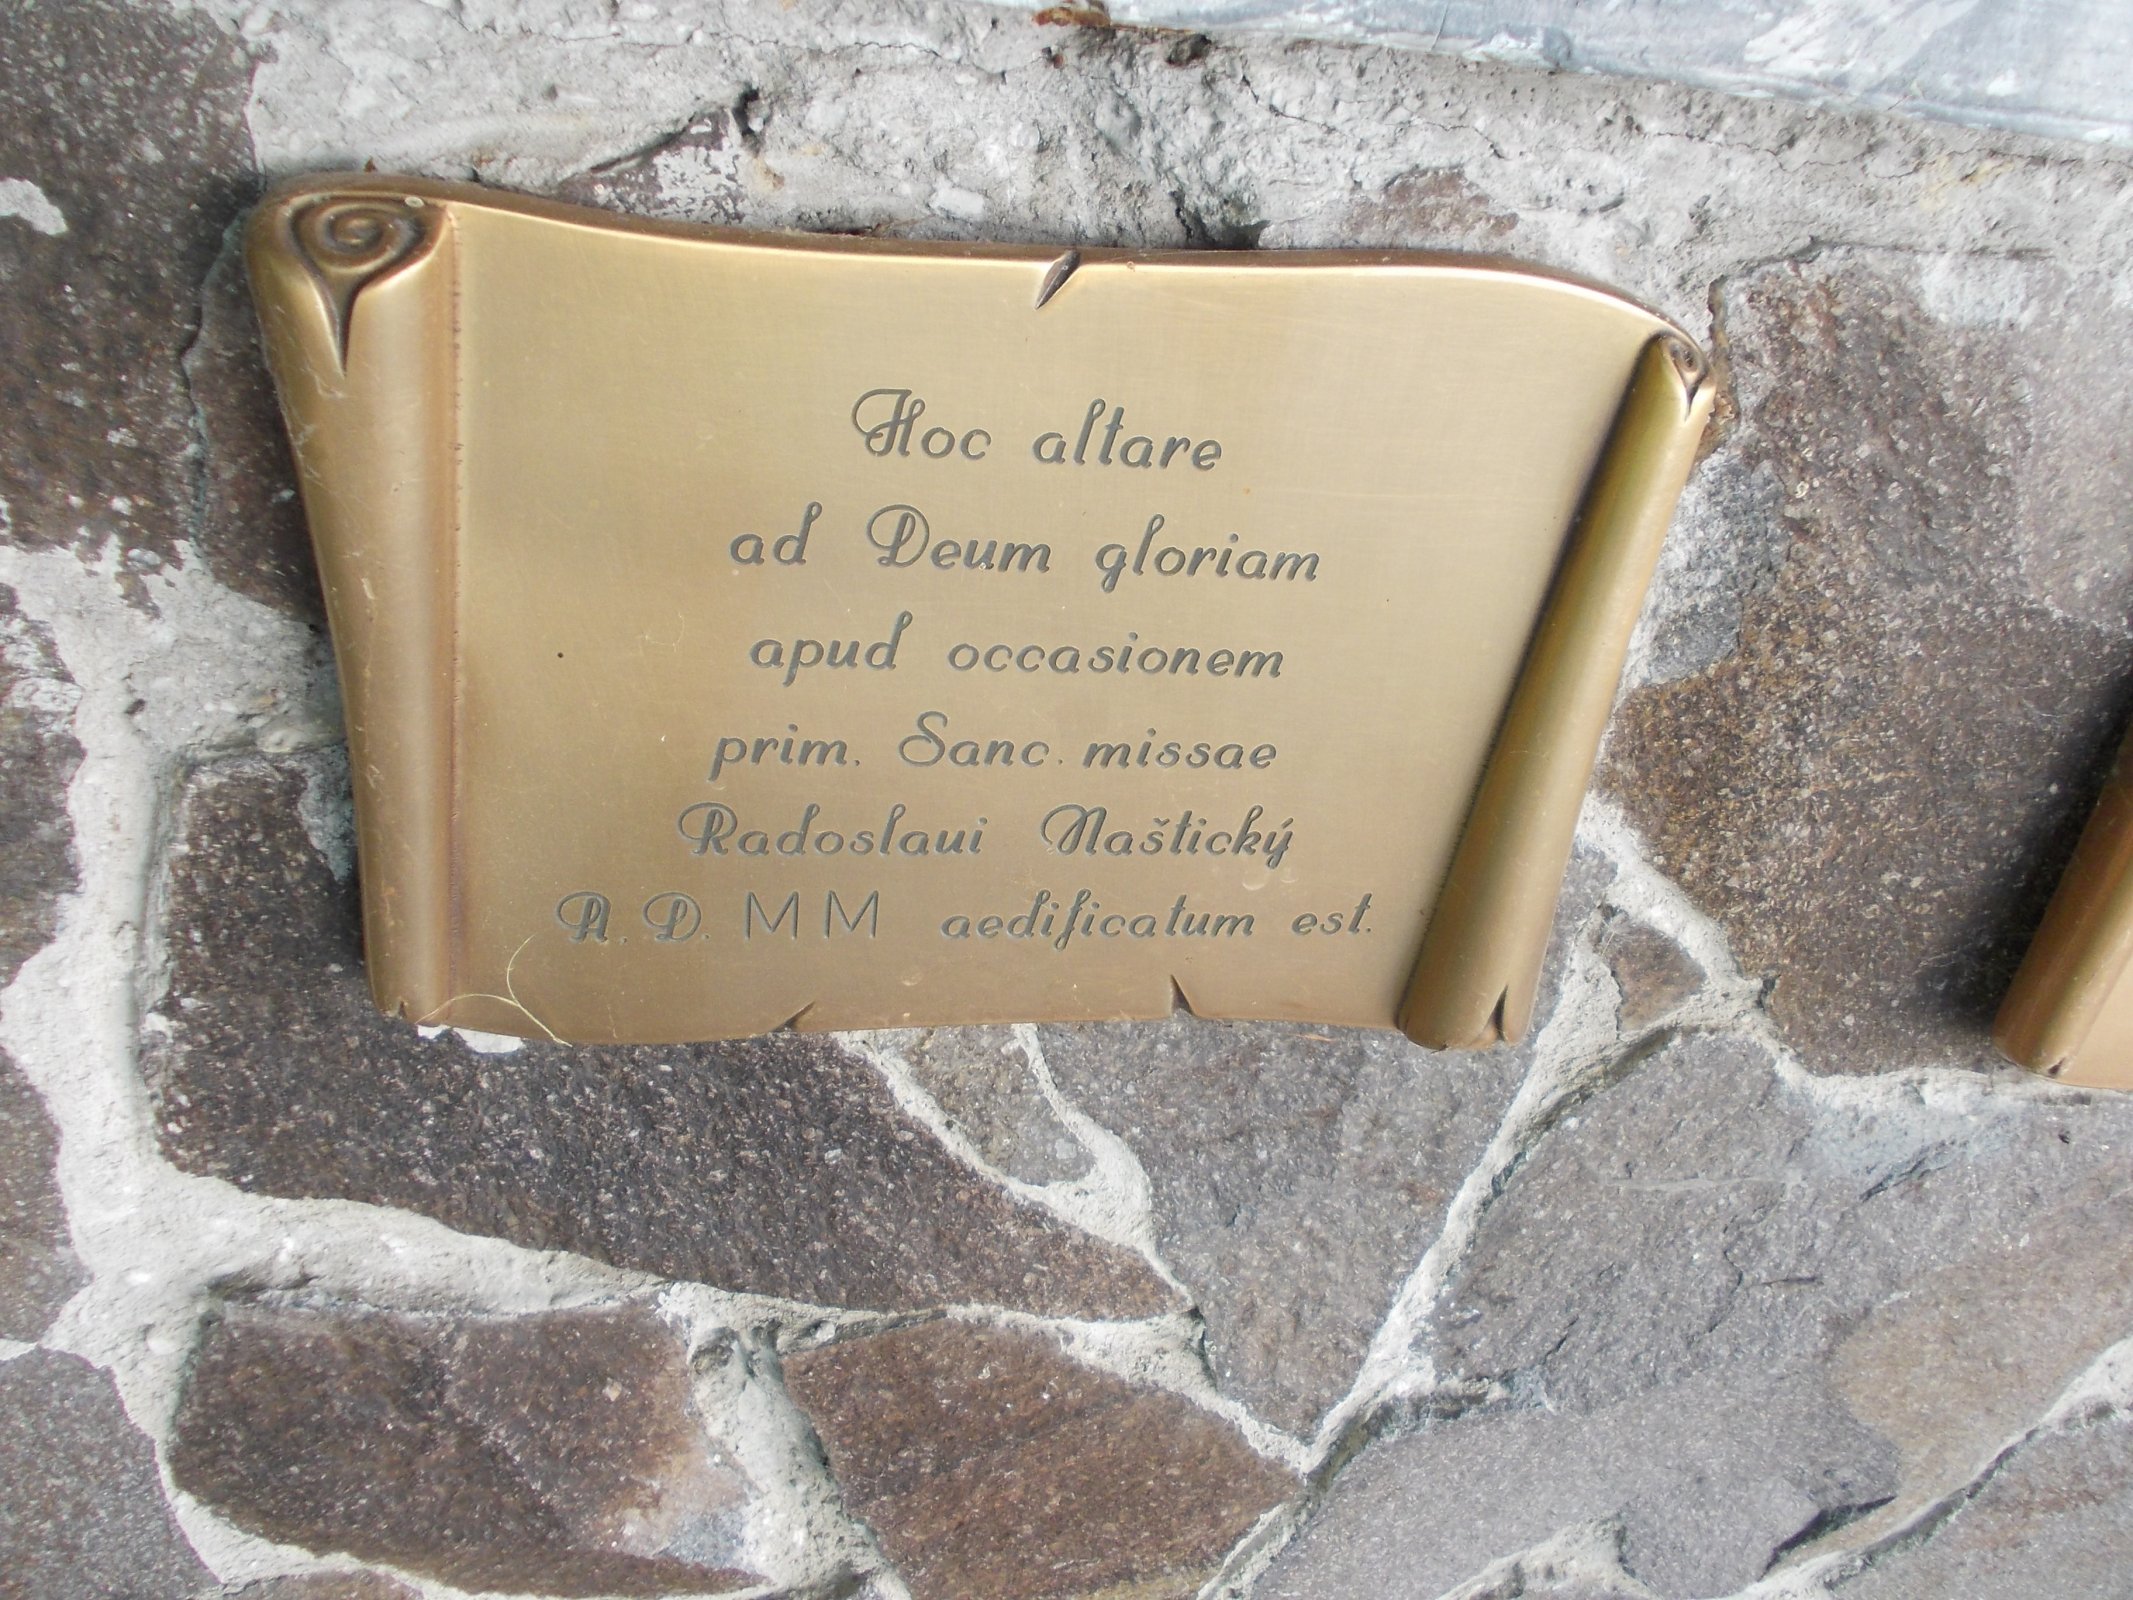 Hoc altare
ad Deum gloriam
apud occasionem
prim. Sanc. missae
Radoslaui Naštický
A. D. MM aedificatum est.